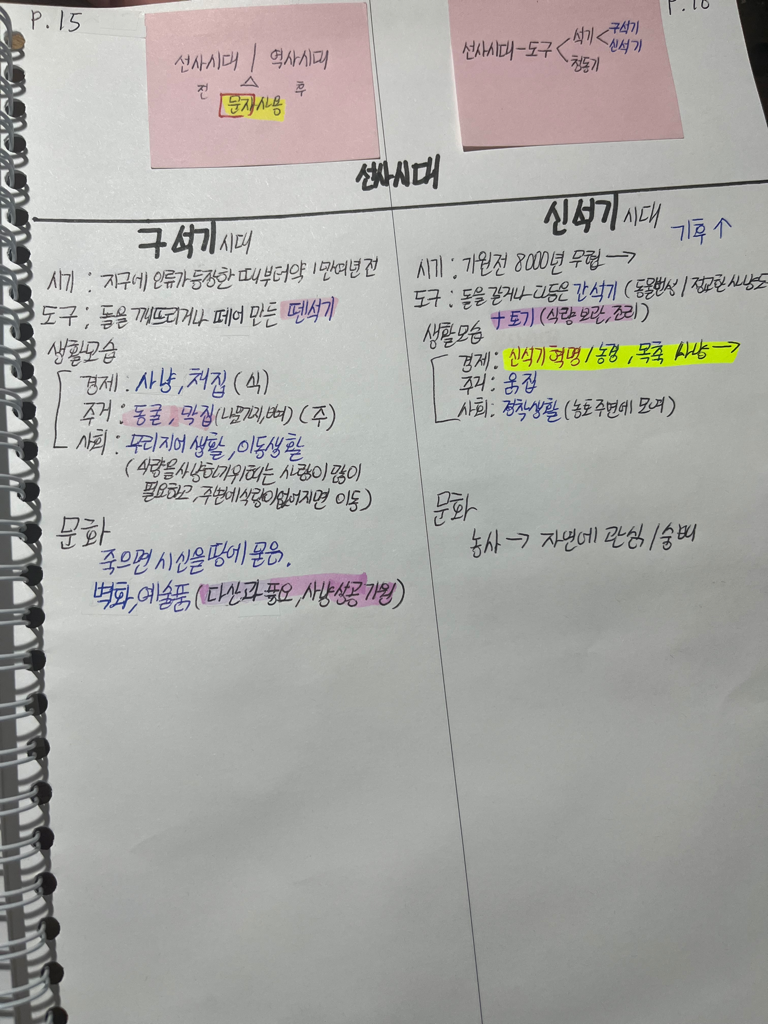 P.15
선사시대 | 역사시대
전 △ 후
문자사용
P.16
선사시대 - 도구 < 석기 < 구석기
신석기
청동기
선사시대
구석기 시대
시기 : 지구에 인류가 등장한 때부터 약 1만여년 전
도구 : 돌을 깨뜨리거나 떼어 만든 뗀석기
생활모습
경제 : 사냥, 채집 (식)
주거 : 동굴, 막집 (나뭇가지, 뼈) (주)
사회 : 무리지어 생활, 이동생활
(식량을 사냥하기위해는 사람이 많이
필요하고, 주변에 식량이 없어지면 이동)
문화
죽으면 시신을 땅에 묻음.
벽화, 예술품 (다산과 풍요, 사냥성공 기원)
신석기 시대
기후 ↑
시기 : 기원전 8000년 무렵 →
도구 : 돌을 갈거나 다듬은 간석기 (동물번성 / 정교한 사냥도
+ 토기 (식량 보관, 조리)
생활모습
경제 : 신석기 혁명 / 농경, 목축 사냥 →
주거 : 움집
사회 : 정착생활 (농토 주변에 모여)
문화
농사 → 자연에 관심 / 숭배